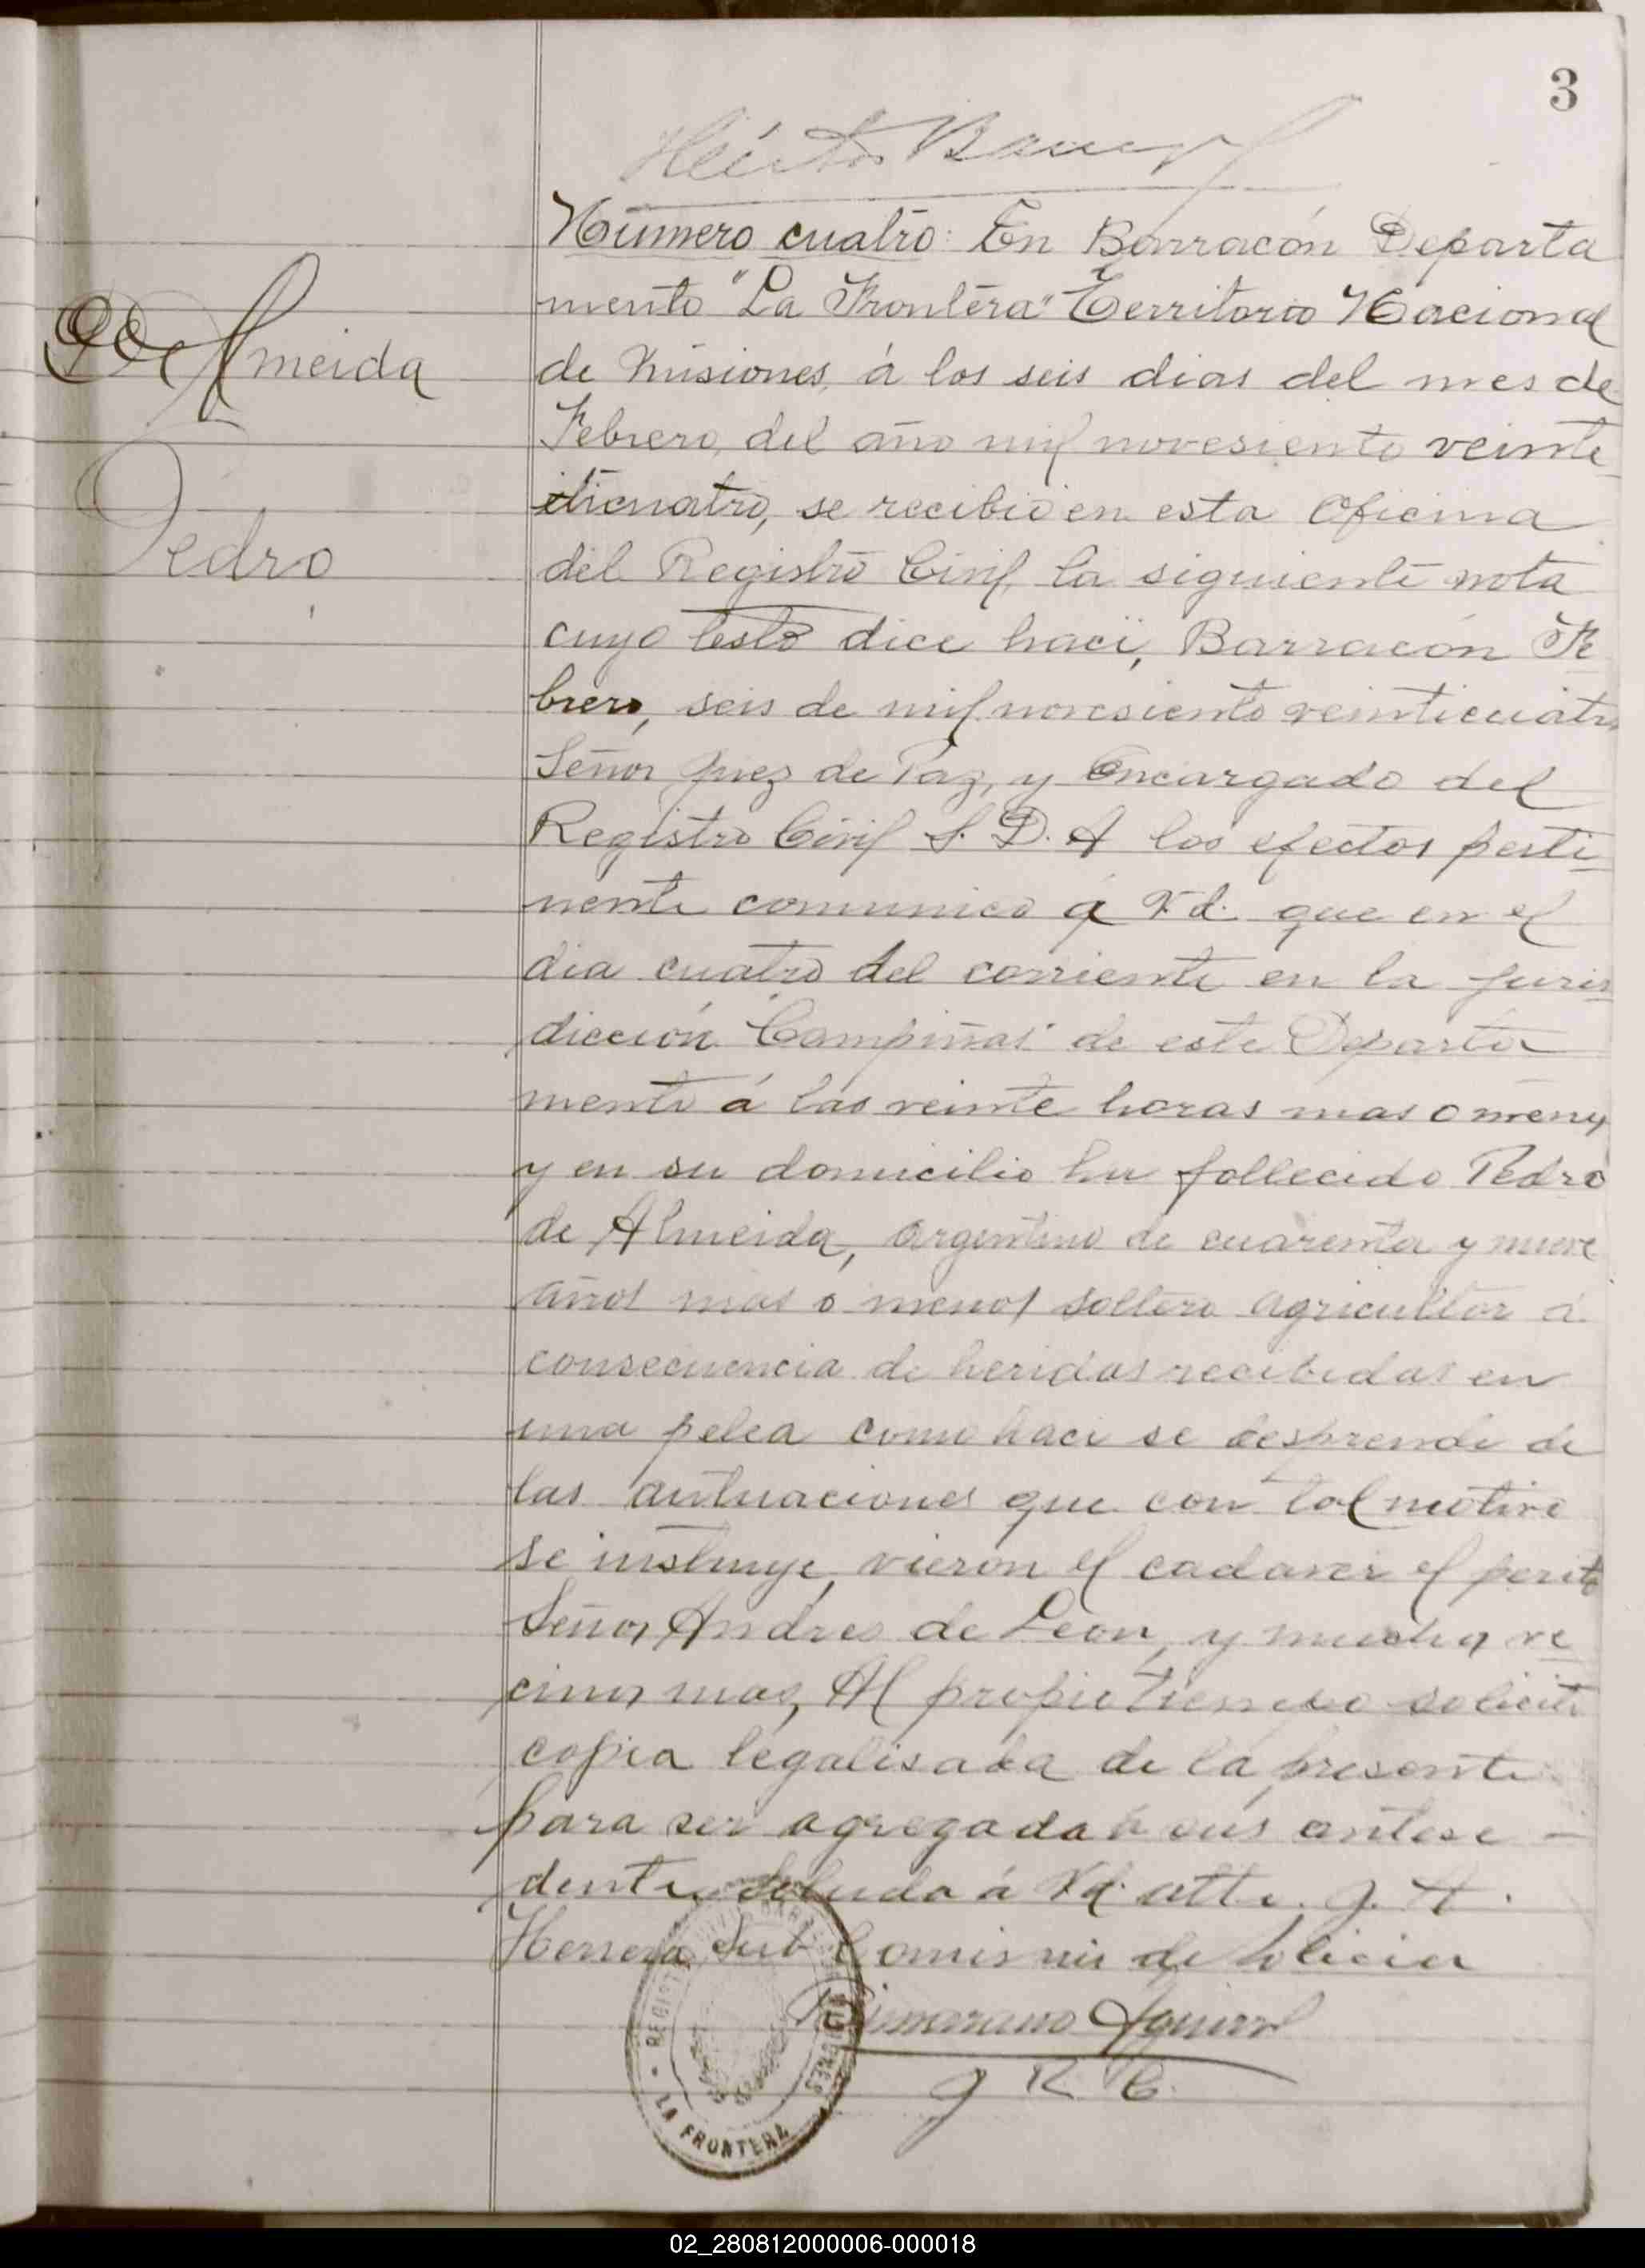 3
Héctor
Número cuatro: En Barracón Departa
mento "La Frontera" Territorio Nacional
de Misiones, á los seis dias del mes de
Febrero, del año mil novesiento veinte
iticuatro, se recibió en esta Oficina
del Registro Civil, la siguiente nota
cuyo testo dice haci, Barracón Fe
brero, seis de mil novesiento veinticuatro
Señor Juez de Paz, y Encargado del
Registro Civil S. D. A los efectos perti
nente comunico á Vd. que en el
dia cuatro del corriente en la juris
dicción "Campiñas" de este Departa
mento á las veinte horas mas o menos
y en su domicilio ha fallecido Pedro
de Almeida, argentino de cuarenta y nueve
años mas o menos soltero agricultor á
consecuencia de heridas recibidas en
una pelea como haci se desprende de
las autuaciones que con tal motivo
se instruye, vieron el cadaver el perito
Señor Andres de Leon, y muchos ve
cinos mas, Al propio tiempo solicito
copia legalisada de la presente
para ser agregada á sus antese
dente, Saluda á Vd. atte. J. A.
Herrera, Sub Comisario de Policia
Aguirre
J R C.
De Almeida
Pedro
REGISTRO CIVIL
MISIONES
LA FRONTERA
02_280812000006-000018